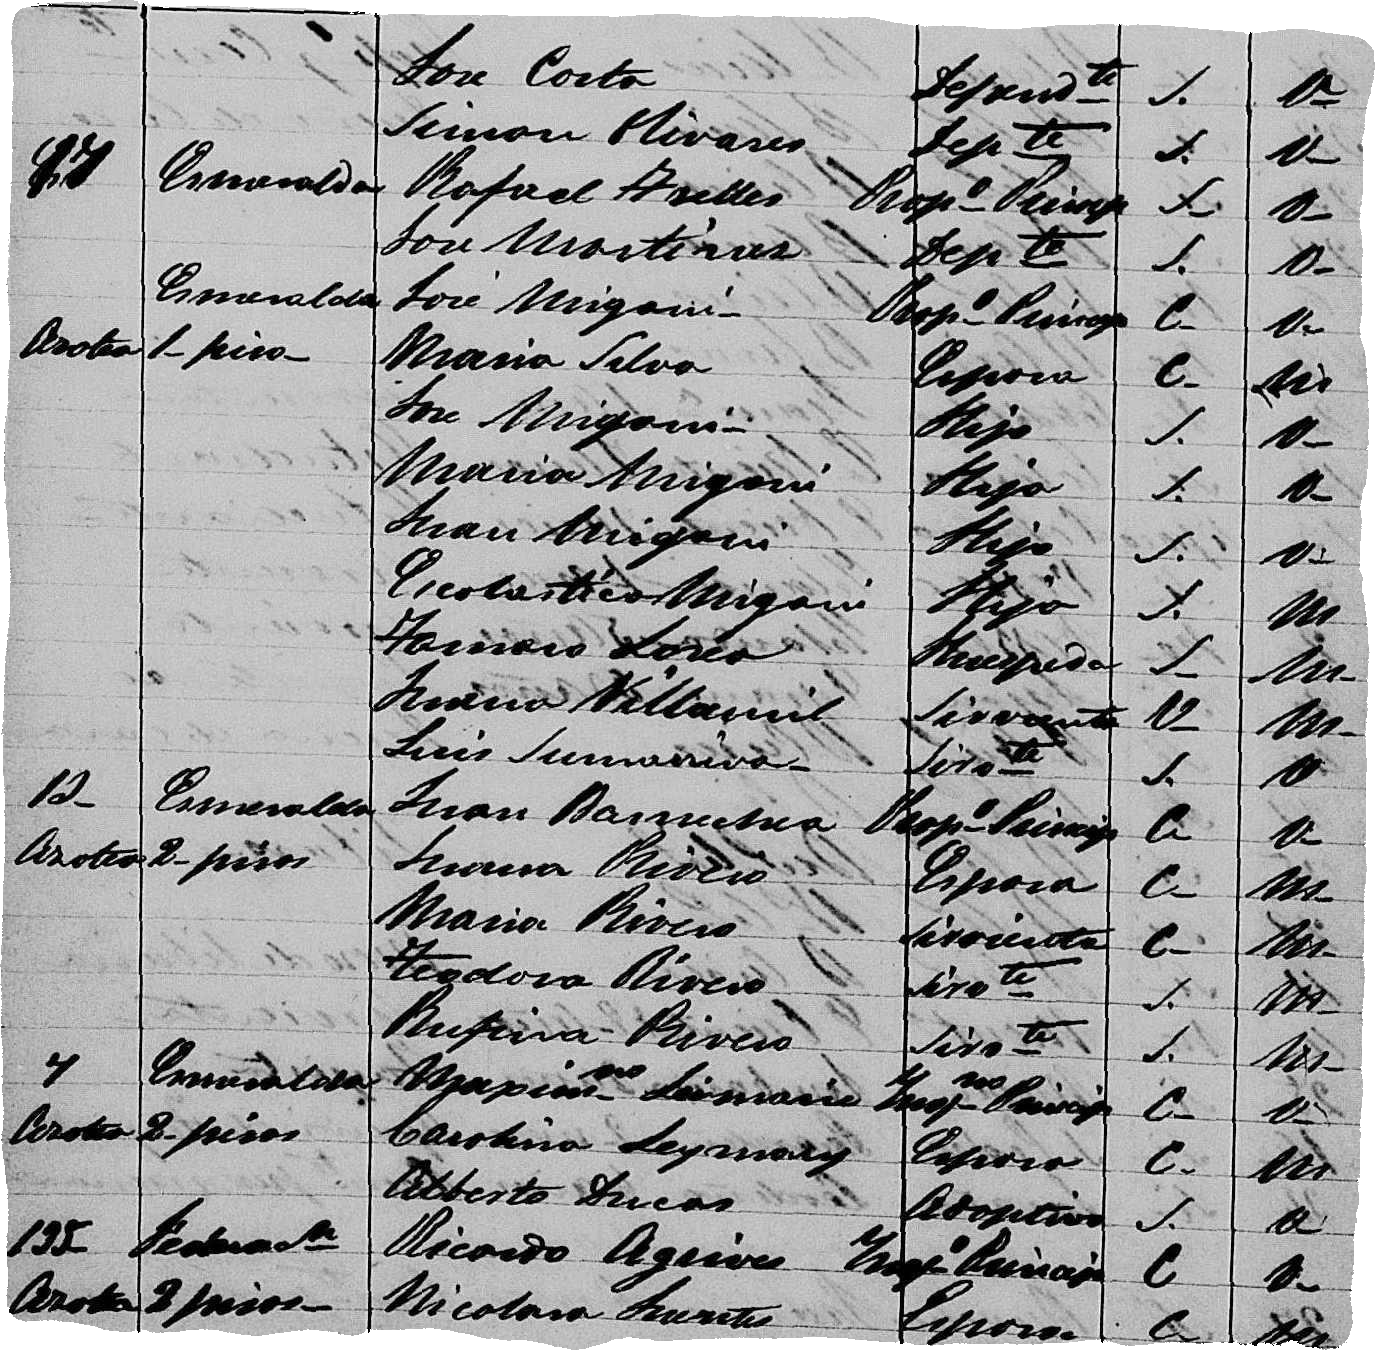 Jose Costa Depend.te S. V-
Simon Olivares Dep.te S. V-
Esmeralda Rafael Prop.o Princip S- V-
Jose Martinez Dep.te S. V-
Esmeralda José Migoni- Prop.o Princip C- V-
Azotea 1- piso- Maria Silva Esposa C- M
Jose Migoni- Hijo S. V-
Maria Migoni Hija S. V-
Juan Migoni Hijo S. V-
Escolastica Migoni Hija S. M
Lorea Huespeda S- M-
Juana Villamil Sirvienta V- M-
Luis Sumariva- Sirv.te S. V
12- Esmeralda Juan Barnechea Prop.o Princip C- V-
Azotea 2- pisos Juana Rivero Esposa C- M-
Maria Rivero Sirvienta C- M-
Teodora Rivero Sirv.te S. M-
Rufina Rivero Sirv.te S. M-
7 Esmeralda Maxim.no Princip C- V-
Azotea 2- pisos Carolina Leymary Esposa C- M
Alberto Ducas Adoptivo S. V
135 Piedra Ricardo Aguirre Inq.o Princip C V-
Azotea 2 pisos- Nicolasa Fuentes Esposa- C- M-